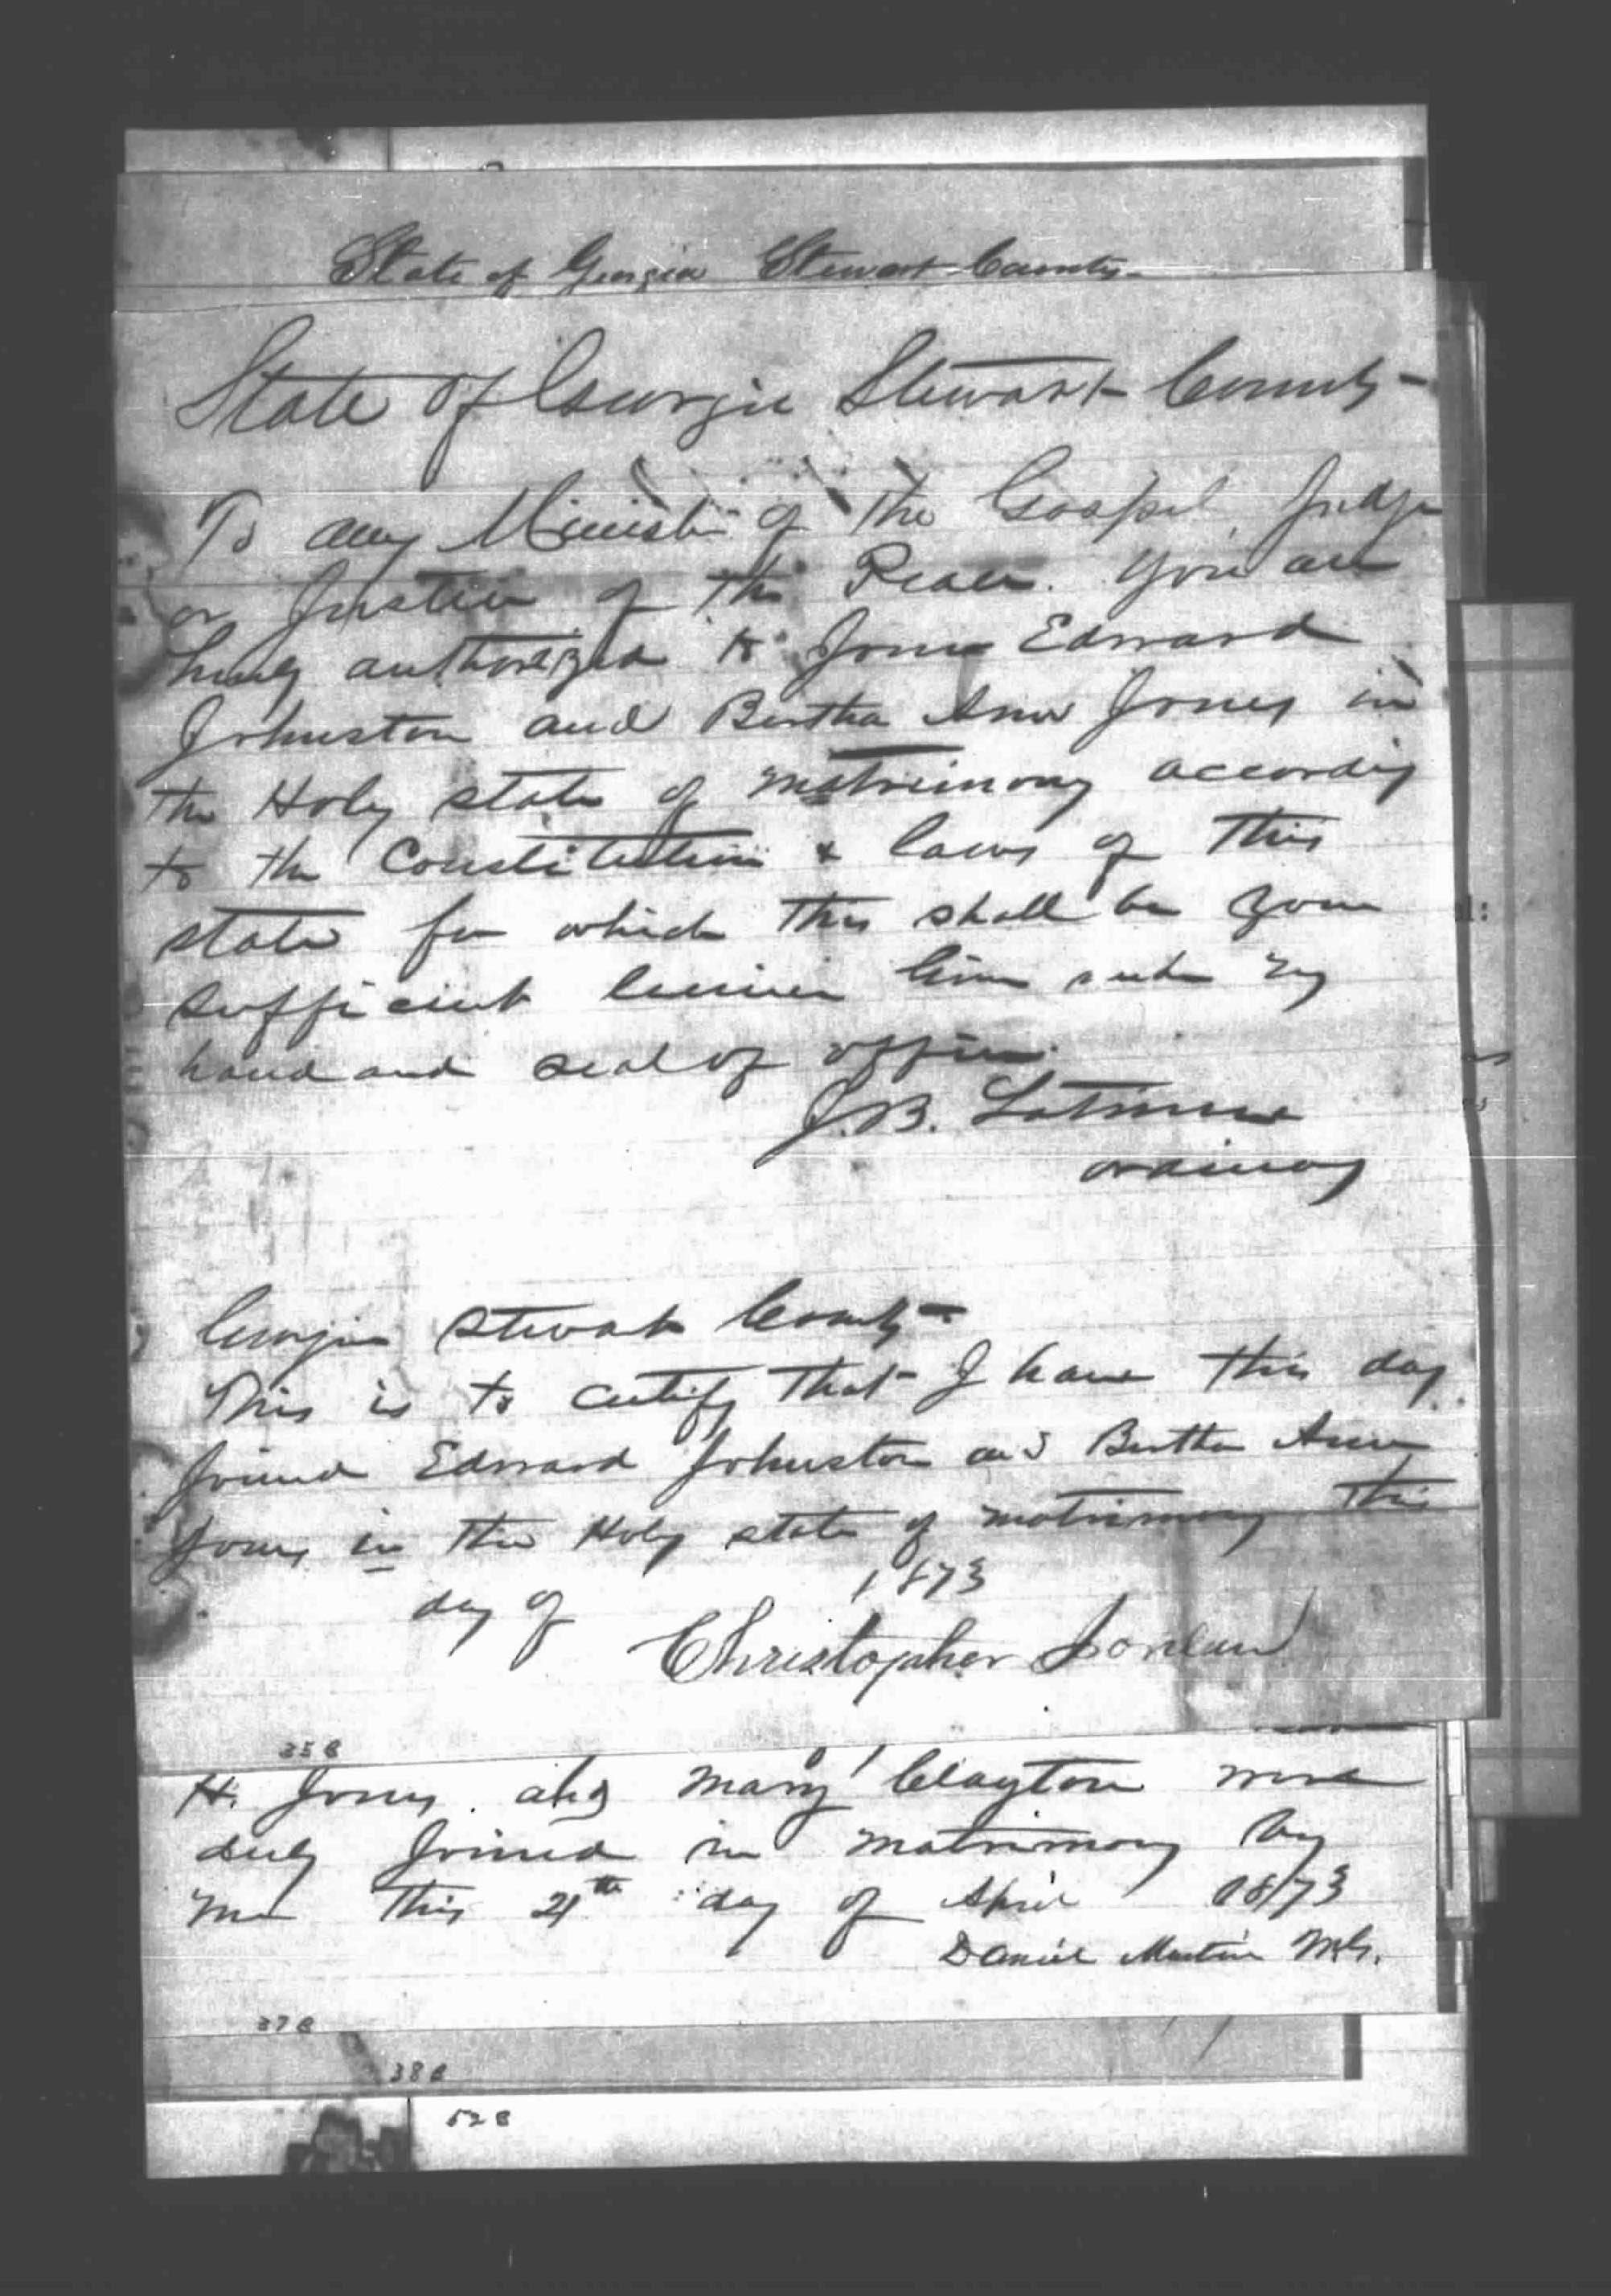 State of Georgia Stewart County
State of Georgia Stewart County -
To any Minister of the Gospel, Judge
or Justice of the Peace. You are
hereby authorized to Join Edward
Johnston and Bertha Ann Jones in
the Holy state of matrimony according
to the Constitution & laws of this
state for which this shall be your
sufficient license Given under my
hand and seal of office.
J.B. Latimer
ordinary
Georgia Stewart County -
This is to certify that I have this day
Joined Edward Johnston and Bertha Ann
Jones in the Holy state of matrimony this
day of 1873
Christopher
35B
H. Jones and Mary Clayton were
duly Joined in matrimony by
me this day of April 1873
Daniel Martin M.G.
37B
38B
52B